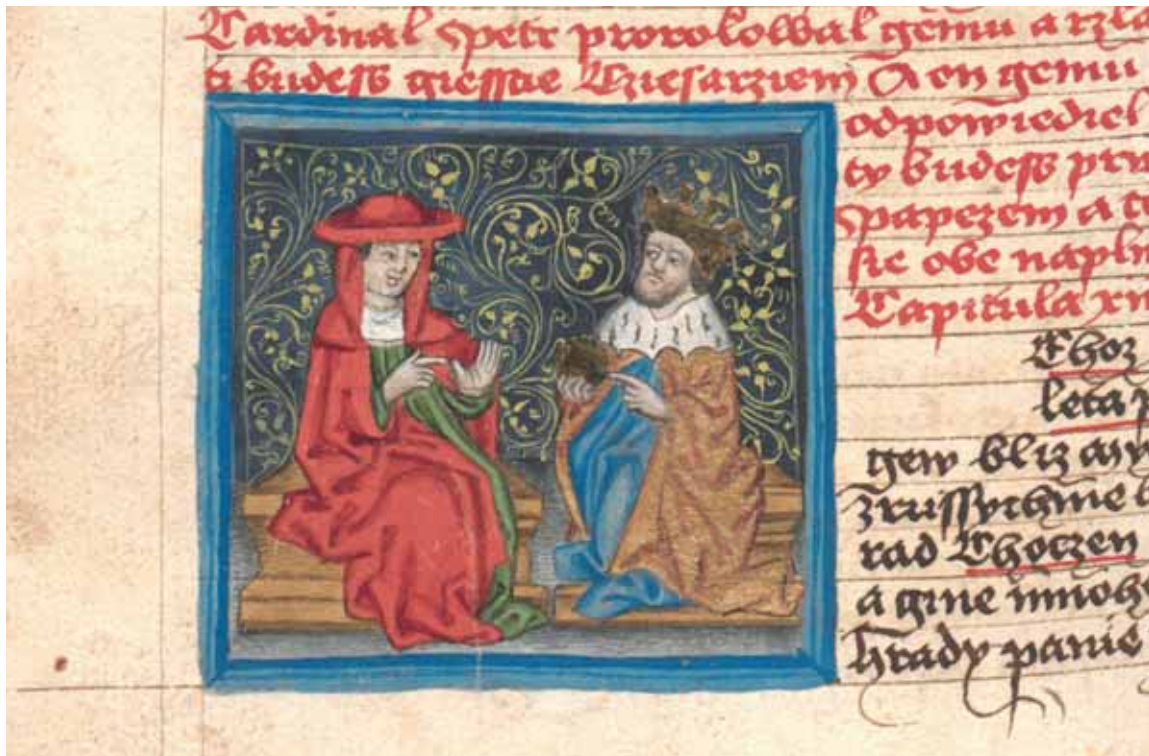 Cardinal Petr prorokowal gemu a rzka
ti budess giesstie Cziesarziem A on gemu
odpowiediel
ty budess prw
papezem a to
sie obe napln
Capitula xii
Choz
leta p
gew bliz
zrussichme
rad Choczen
a gine mnohe
hrady panie